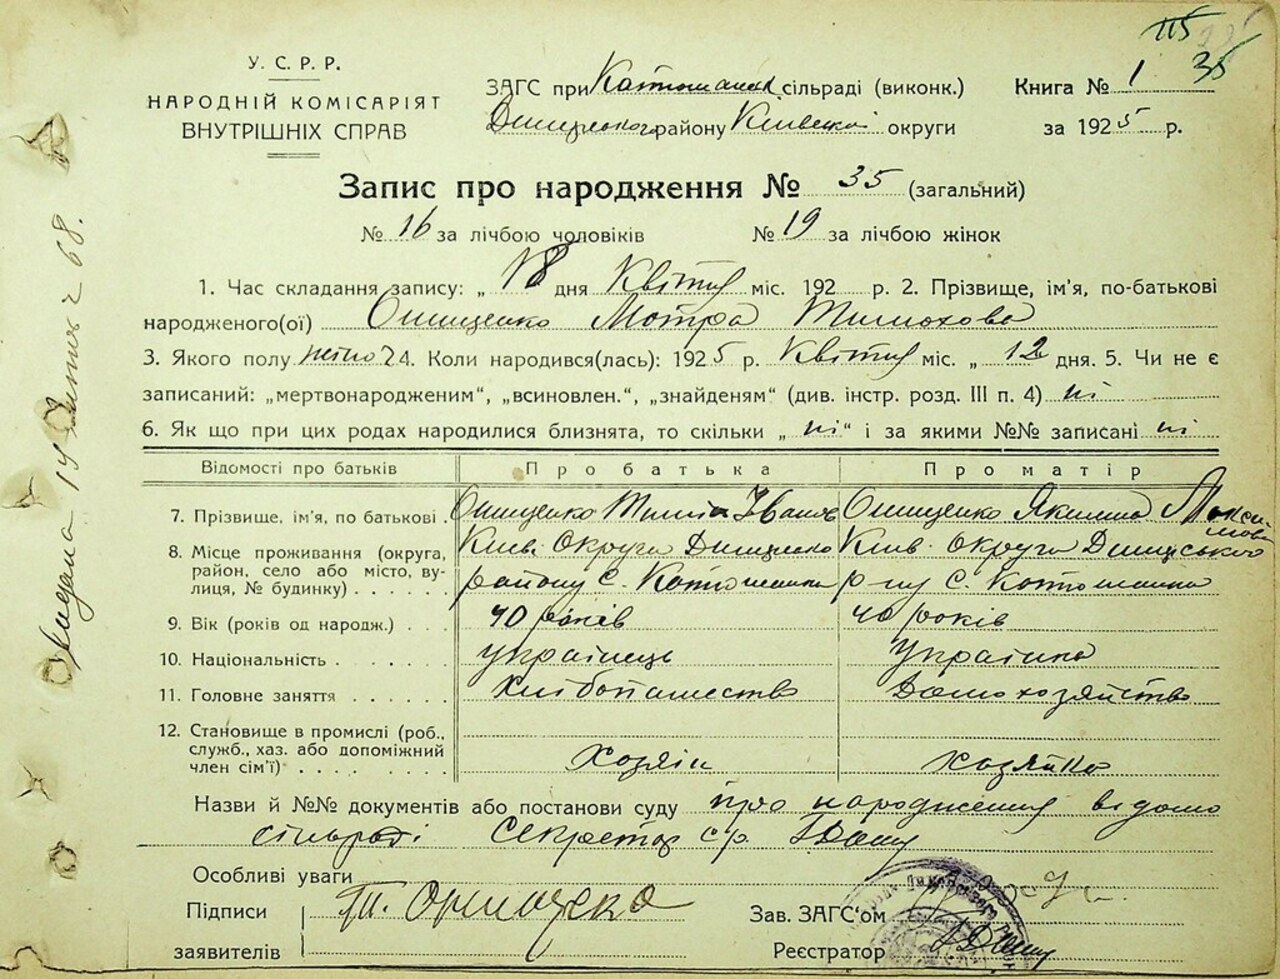 115
35
У. С. Р. Р.
НАРОДНІЙ КОМІСАРІЯТ
ВНУТРІШНІХ СПРАВ
ЗАГС при сільраді (виконк.)
району Київської округи
Книга № 1
за 1925 р.
Запис про народження № 35 (загальний)
№ 16 за лічбою чоловіків № 19 за лічбою жінок
1. Час складання запису: „ 18 дня Квітня міс. 192 р. 2. Прізвище, ім'я, по-батькові
народженого(ої) Онищенко Мотра Тимохова
3. Якого полу 4. Коли народився(лась): 1925 р. Квітня міс. „ 12 дня. 5. Чи не є
записаний: „мертвонародженим“, „всиновлен.“, „знайденям“ (див. інстр. розд. III п. 4) ні
6. Як що при цих родах народилися близнята, то скільки „ ні “ і за якими №№ записані ні
Відомості про батьків Про батька Про матір
7. Прізвище, ім'я, по батькові . Онищенко Онищенко Якилина
8. Місце проживання (округа, Київ. Округа Київ. округа
район, село або місто, ву-
лиця, № будинку) . . . . . . району С. р-ну С.
9. Вік (років од народж.) . . . 40 років 40 років
10. Національність . . . . . . . Українець Українка
11. Головне заняття . . . . . Хлібопашество Домохозяйство
12. Становище в промислі (роб.,
служб., хаз. або допоміжний
член сім'ї) . . . . . . . . . Хозяін хозяйка
Назви й №№ документів або постанови суду про народження відомо
сільраді Секретар с/р.
Особливі уваги
Підписи
заявителів Т. Онищенко
Зав. ЗАГС'ом
Реєстратор